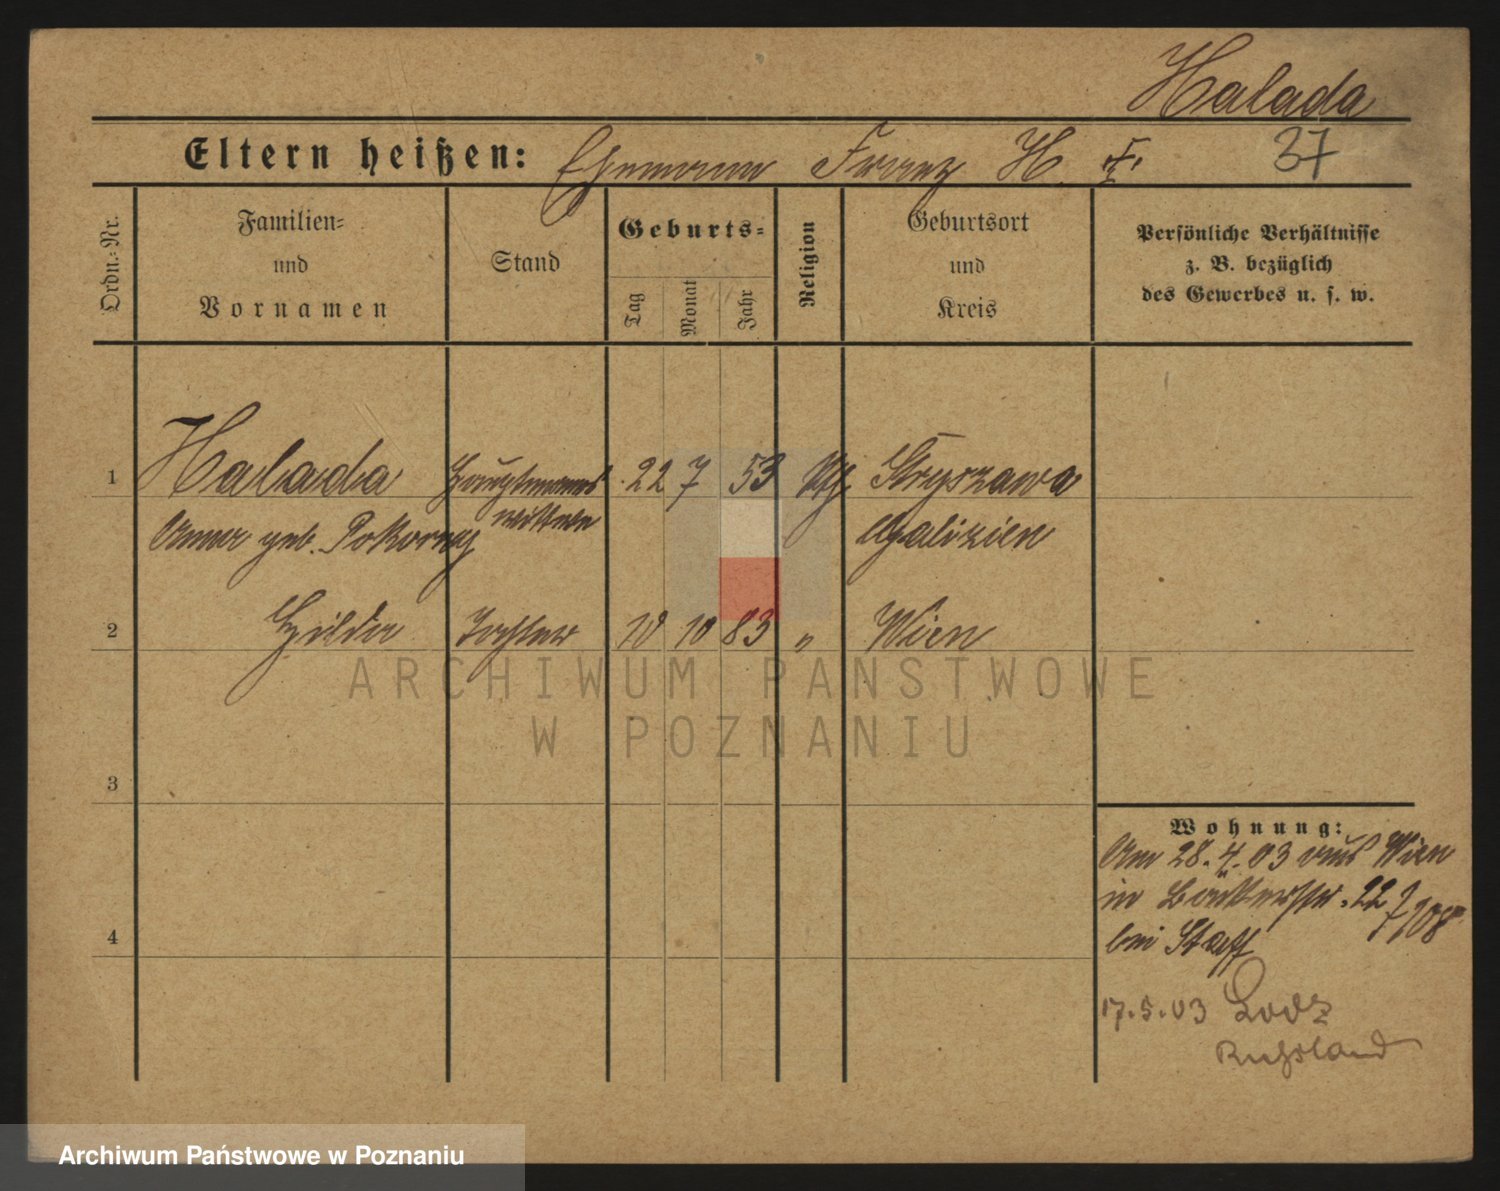 Halada
Eltern heißen: Ehemann Franz H. †.
37
Ordn.-Nr.
Familien-
und
Vornamen
Stand
Geburts-
Tag
Monat
Jahr
Religion
Geburtsort
und
Kreis
Persönliche Verhältnisse
z. B. bezüglich
des Gewerbes u. s. w.
1 Halada Hauptmanns 22 7 53 Stryszawa
witwe
Anna geb. Pokorny Galizien
2 Hilda Tochter 10 10 83 " Wien
ARCHIWUM PAŃSTWOWE
W POZNANIU
3
Wohnung:
Am 28.4.03 aus Wien
in Bäckerstr. 22
bei
4
17.5.03 Lodz
Russland
Archiwum Państwowe w Poznaniu